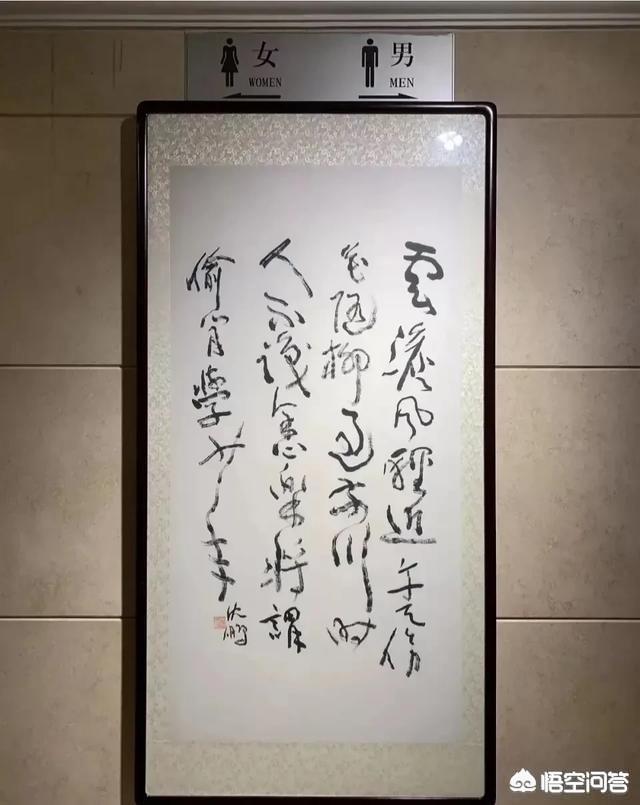 女 男
WOMEN MEN
雲淡风輕近午天傍
花随柳过前川时
人不識余心樂將謂
偷閒學少年
沈鹏
悟空问答